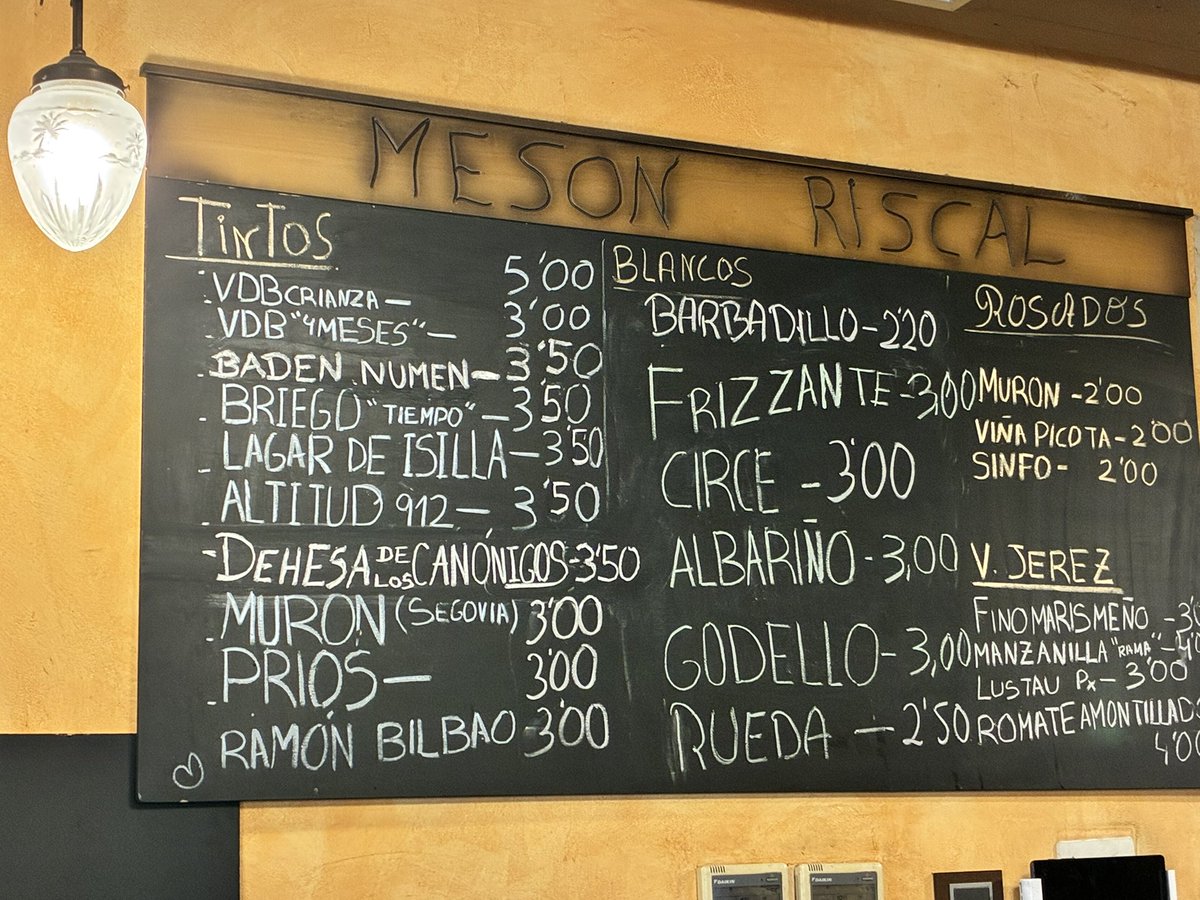 MESON RISCAL
TINTOS
VDB CRIANZA — 5'00
VDB "4 MESES" — 3'00
BADEN NUMEN — 3'50
BRIEGO "TIEMPO" — 3'50
LAGAR DE ISILLA — 3'50
ALTITUD 912 — 3'50
- DEHESA DE LOS CANÓNIGOS - 3'50
MURON (SEGOVIA) 3'00
PRIOS — 3'00
RAMÓN BILBAO 3'00
BLANCOS
BARBADILLO - 2'20
FRIZZANTE - 3,00
CIRCE - 3'00
ALBARIÑO - 3,00
GODELLO - 3,00
RUEDA — 2'50
ROSADOS
MURON - 2'00
VIÑA PICOTA - 2'00
SINFO - 2'00
V. JEREZ
FINO MARISMEÑO - 3'0
MANZANILLA "RAMA" - 4'0
LUSTAU PX - 3'00
ROMATE AMONTILLADO
4'00
DAIKIN
DAIKIN